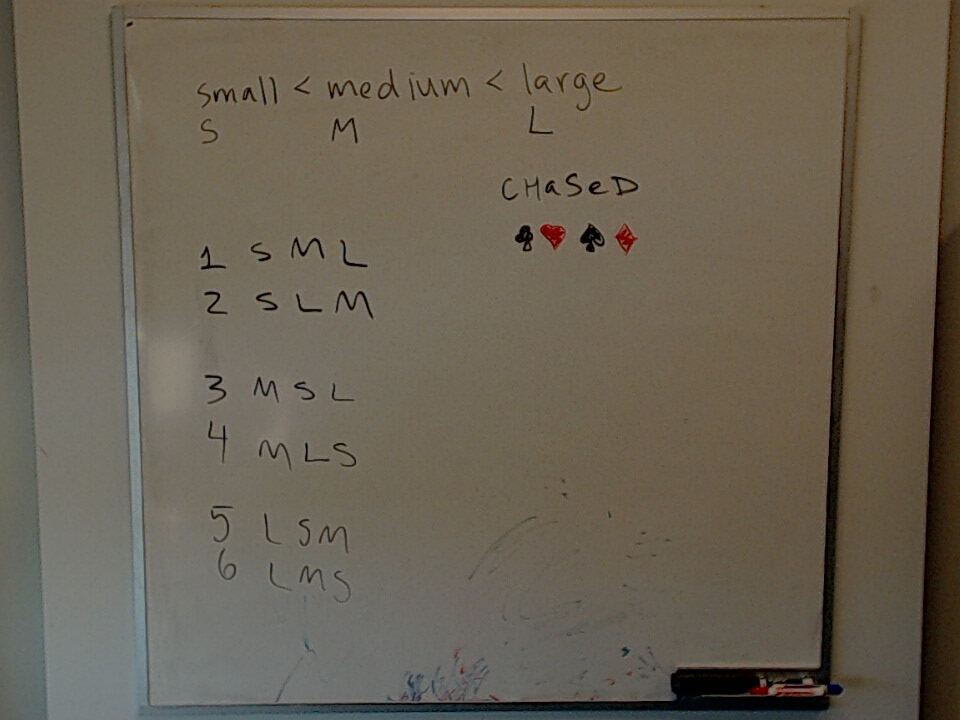 small < medium < large
S M L
CHaSeD
♣♥♠♦
1 S M L
2 S L M
3 M S L
4 M L S
5 L S M
6 L M S